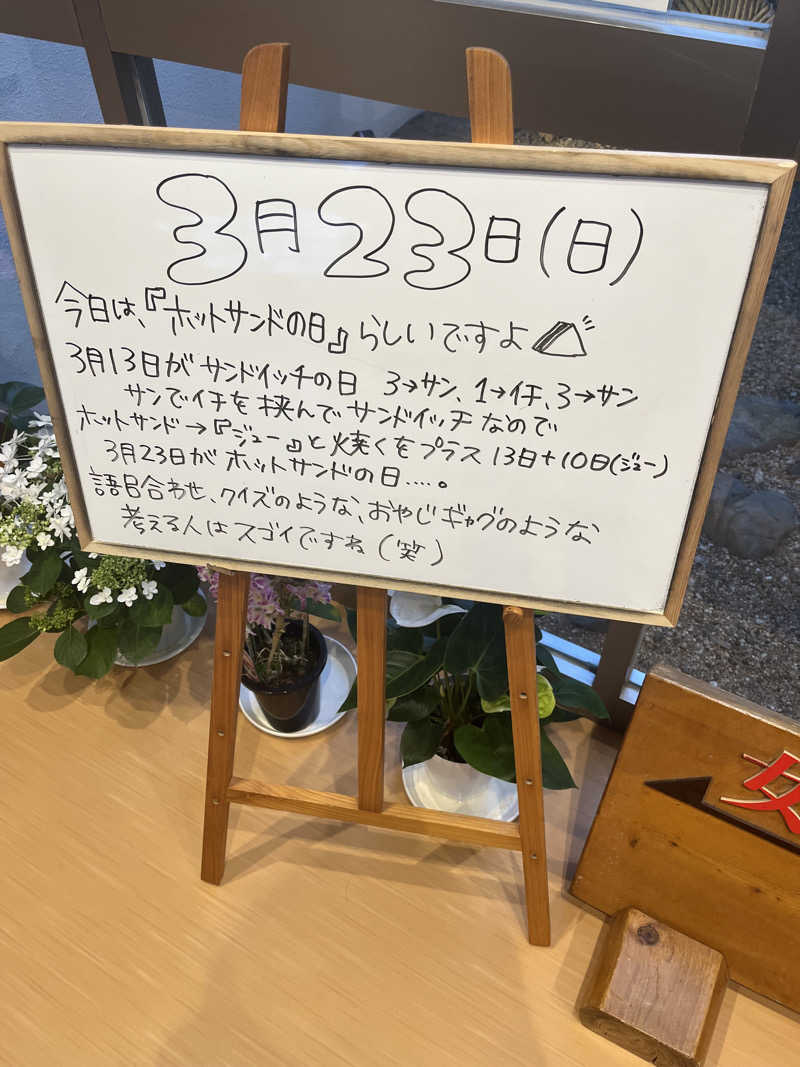 3月23日(日)
今日は、『ホットサンドの日』らしいですよ
3月13日がサンドイッチの日 3→サン、1→イチ、3→サン
サンでイチを挟んでサンドイッチなので
ホットサンド→『ジュー』と焼くをプラス13日+10日(ジュー)
3月23日がホットサンドの日....。
語呂合わせ、クイズのような、おやじギャグのような
考える人はスゴイですね(笑)
女